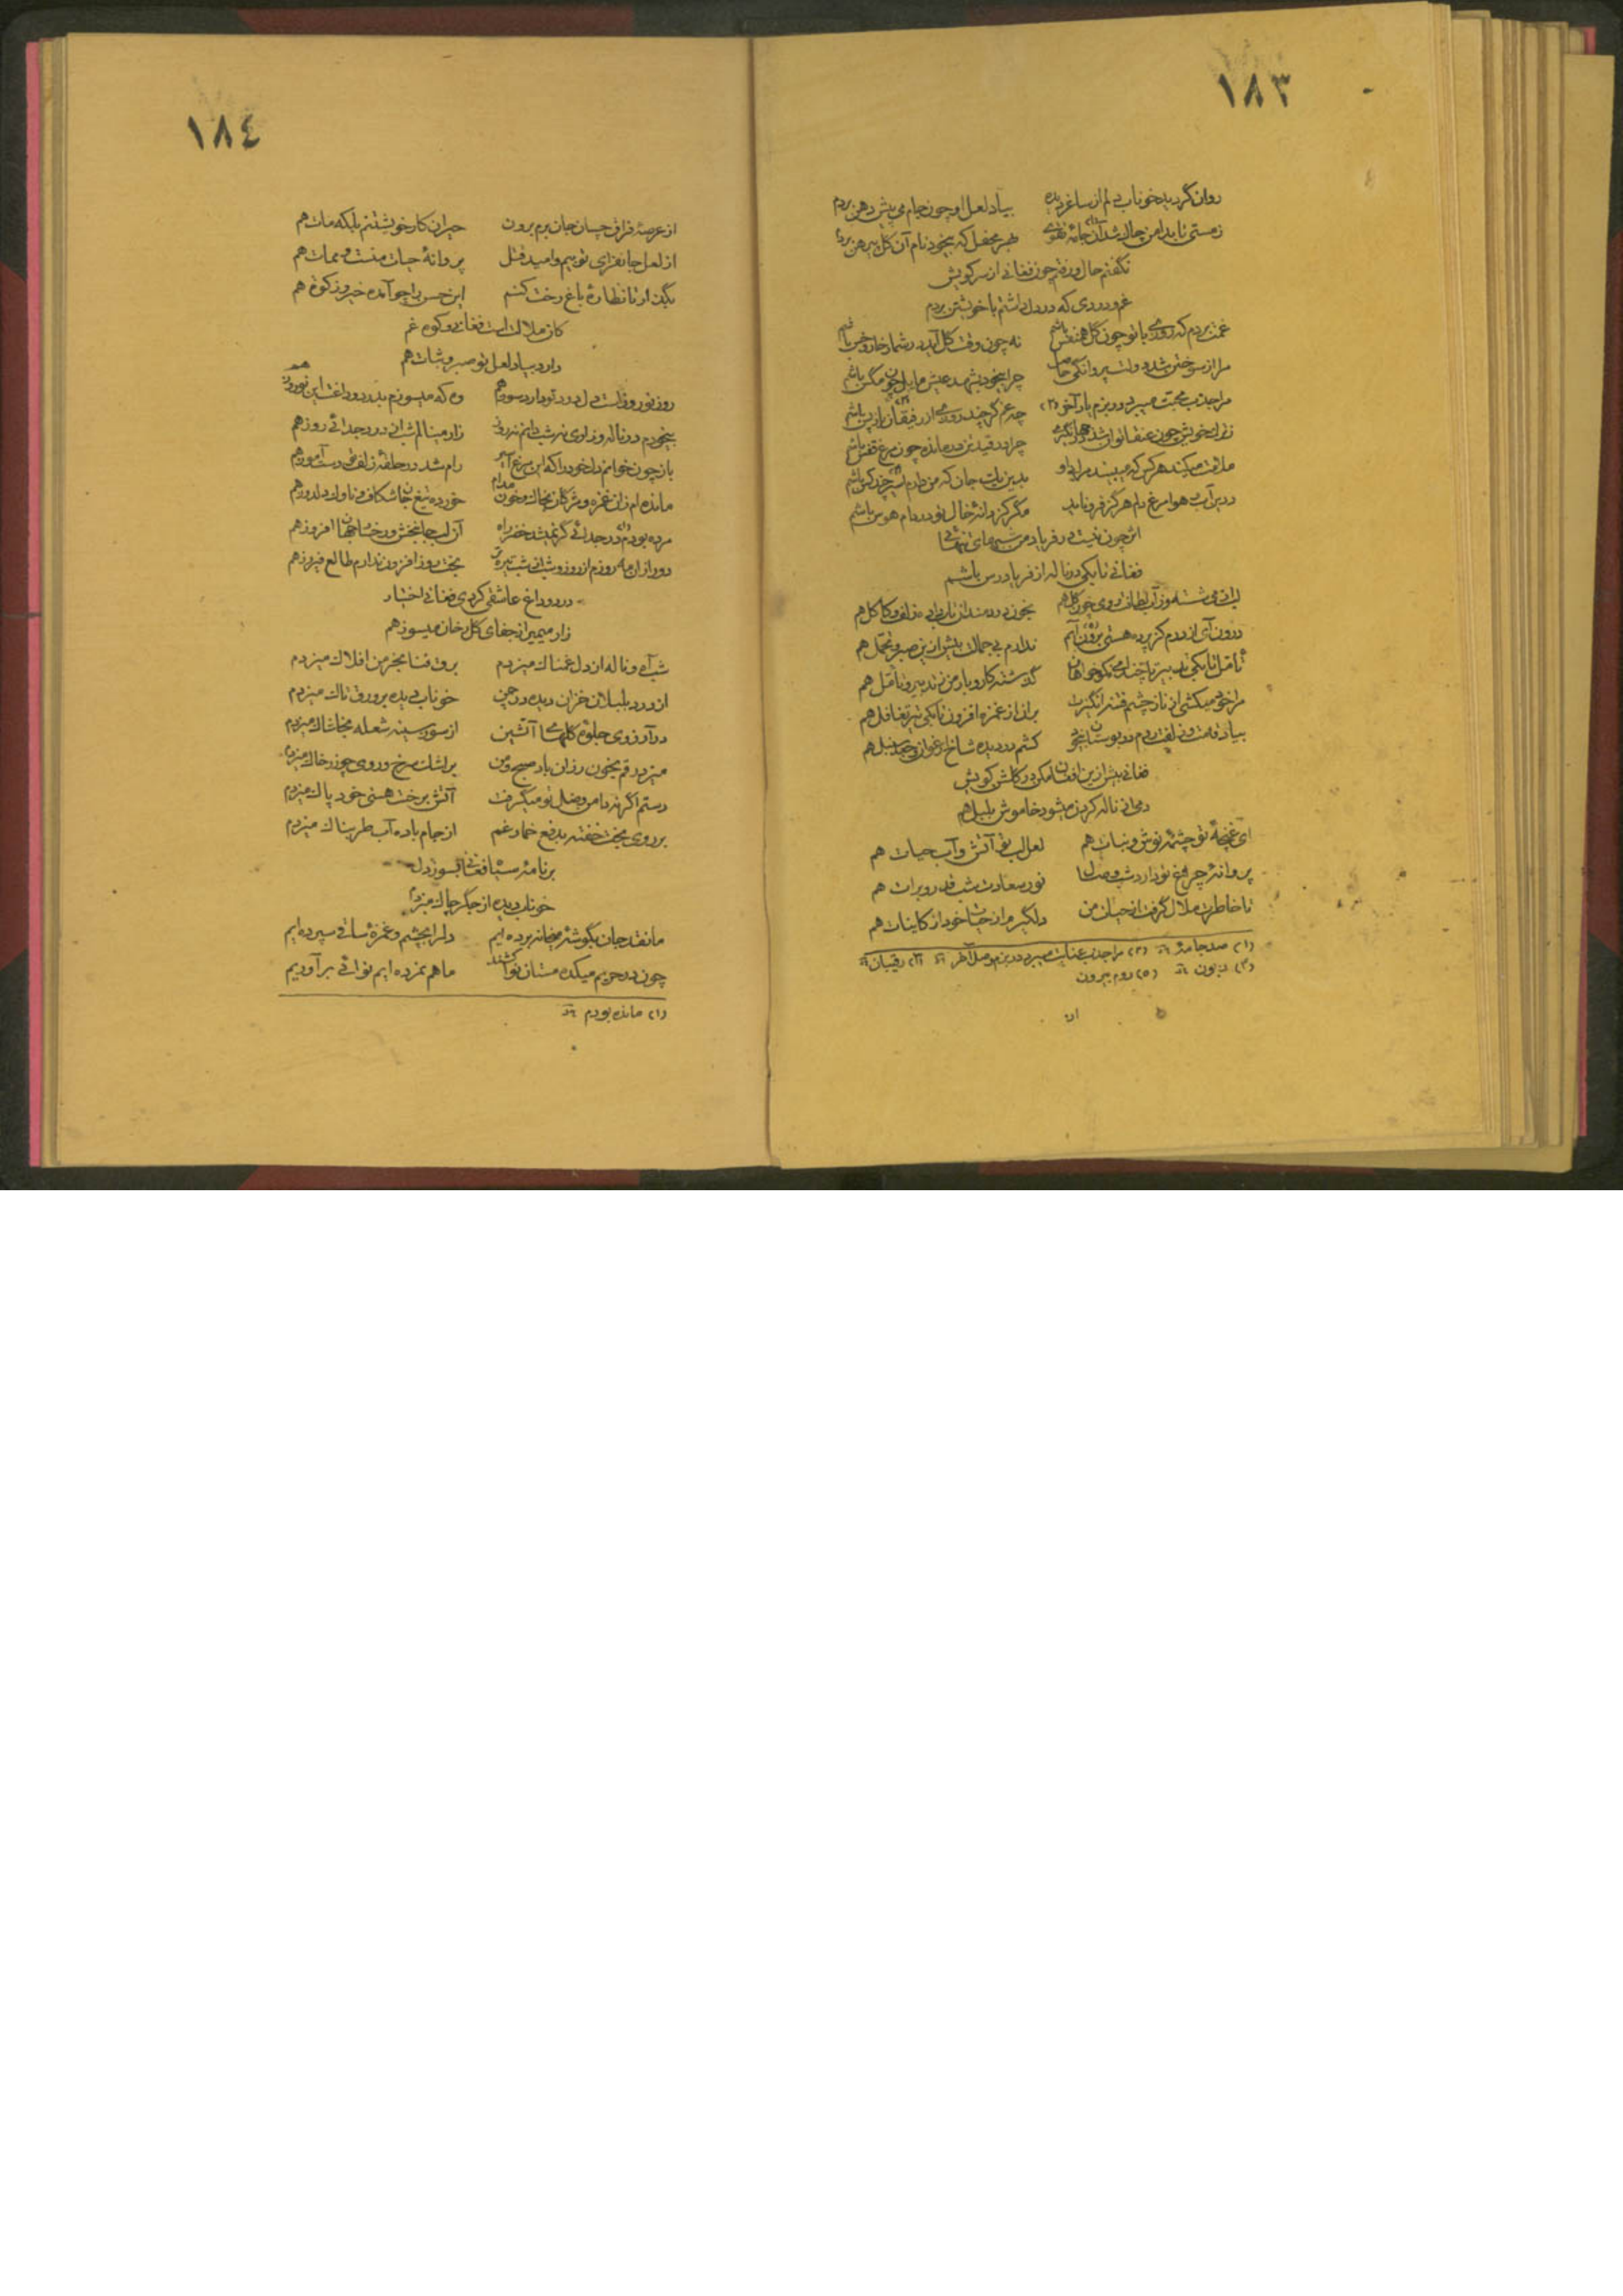 ١٨٣
روان گردید خوناب دلم از ساغر دیده بیاد لعل او چون جام می پیش دهن بردم
ز مستی تا بدامن چاک شد آن جامهٔ تقوی بهر محفل که بیخود نام آن گل پیرهن بردم
نگفتم حال و رفتم چون فغانی از سر کویش
غم و دردی که در دل داشتم با خویشتن بردم
غمت بردم که روزی با تو چون گل همنفس باشم نه چون وقت گل آید در شمار خار و خس باشم
مرا از سوختن شد دولت پروانگی حاصل چرا بیخود بشهد عیش مایل چون مگس باشم
مرا جذب محبت میبرد در بزم یار آخر (٢) چه غم گر چند روزی از رفیقان باز پس باشم
ز ترک خویش چون عنقا توان شد در جهانگیری چرا در قید تن درمانده چون مرغ قفس باشم
ملامت میکند هر کس که میبیند مرا بی او بدین بابت جان که من دارم اسیر چند کس باشم
درین آب و هوا مرغ دلم هرگز فرو ناید مگر کز دانهٔ خال تو در دام هوس باشم
اثر چون نیست در فریاد من شبهای تنهائی
فغانی تا بکی در ناله از فریادرس باشم
ای می شسته وز آب لطافت روی چون گل هم بخون دردمندان تاب داده زلف و کاکل هم
درون آی از درم کز پردهٔ هستی برون آیم ندارم بی جمالت بیش ازین صبر و تحمل هم
تأمل تا بکی تدبیر تا چند ای نکوخواهان گذشته کار و بار من ز تدبیر و تأمل هم
مرا خود میکشی از ناز چشم فتنه انگیزت بران از غمزه افزون تا بکی تیر تغافل هم
بیاد قامت و زلفت روم در بوستان بیخود کشم در دیده شاخ ارغوان و جعد سنبل هم
فغانی بیش ازین افغان مکن در گلشن کویش
دمی از ناله کردن میشود خاموش بلبل هم
ای غنچهٔ تو چشمهٔ نوش و نبات هم لعل لب تو آتش و آب حیات هم
پروانهٔ چراغ تو دارد شب وصال نور سعادت شب قدر و برات هم
تا خاطرت ملال گرفت از حیات من دلگیرم از حیات خود از کاینات هم
(١) صد جامهٔ (٢) مرا جذب عنایت میبرد در بزم وصل آخر (٣) رقیبان
(٤) زبون (٥) روم بیرون
١٨٤
از عرصهٔ فراق چسان جان برم برون حیران کار خویشتنم بلکه مات هم
از لعل جانفزای تو بیم و امید قتل پروانهٔ حیات منست و ممات هم
بگذار تا نظارهٔ باغ رخت کنم این حسن را چو آمده خیر و زکوة هم
کان ملالت است فغانی و کوه غم
دارد بیاد لعل تو صبر و ثبات هم
روز نوروز است دل درد تو دارد سوز هم وه که میسوزم بدرد و داغت این نوروز هم
بیخودم در ناله و زاری نه شب دانم نه روز زار مینالم شب از درد جدائی روز هم
باز چون خوانم دل خود را که این مرغ اسیر رام شد در حلقهٔ زلف تو دست آموز هم
مانده ام زان غمزه و مژگان بخاک و خون مدام خورده تیغ جانشکاف و ناوک دلدوز هم
مرده بودم در جدائی گر نمیشد خضر راه آن لب جانبخش و رخسار جهان افروز هم
دور ازان مه روزم از روز و شب از شب تیره تر بخت روز افزون ندارم طالع فیروز هم
درد و داغ عاشقی کردی فغانی اختیار
زار میمیر از جفای گلرخان میسوز هم
شب آه و ناله از دل غمناک میزدم برق فنا بخرمن افلاک میزدم
از درد بلبلان خزان دیده در چمن خوناب دیده بر ورق تاک میزدم
در آرزوی جلوهٔ گلهای آتشین از سوز سینه شعله بخاشاک میزدم
میزد رقم بخون رزان باد صبح و من بر اشک سرخ و روی چو زر خاک میزدم
دستم اگر نه دامن وصل تو میگرفت آتش برخت هستی خود پاک میزدم
بر روی بخت خفته بدفع خمار غم از جام باده آب طربناک میزدم
بر نامهٔ سیاه فغانی بسوز دل
خوناب دیده از جگر چاک میزدم
ما نقد جان بگوشهٔ میخانه برده ایم دل را بچشم و غمزهٔ ساقی سپرده ایم
چون در حریم میکده مستان نوا کشند ما هم نمرده ایم نوائی برآوریم
(١) مانده بودم